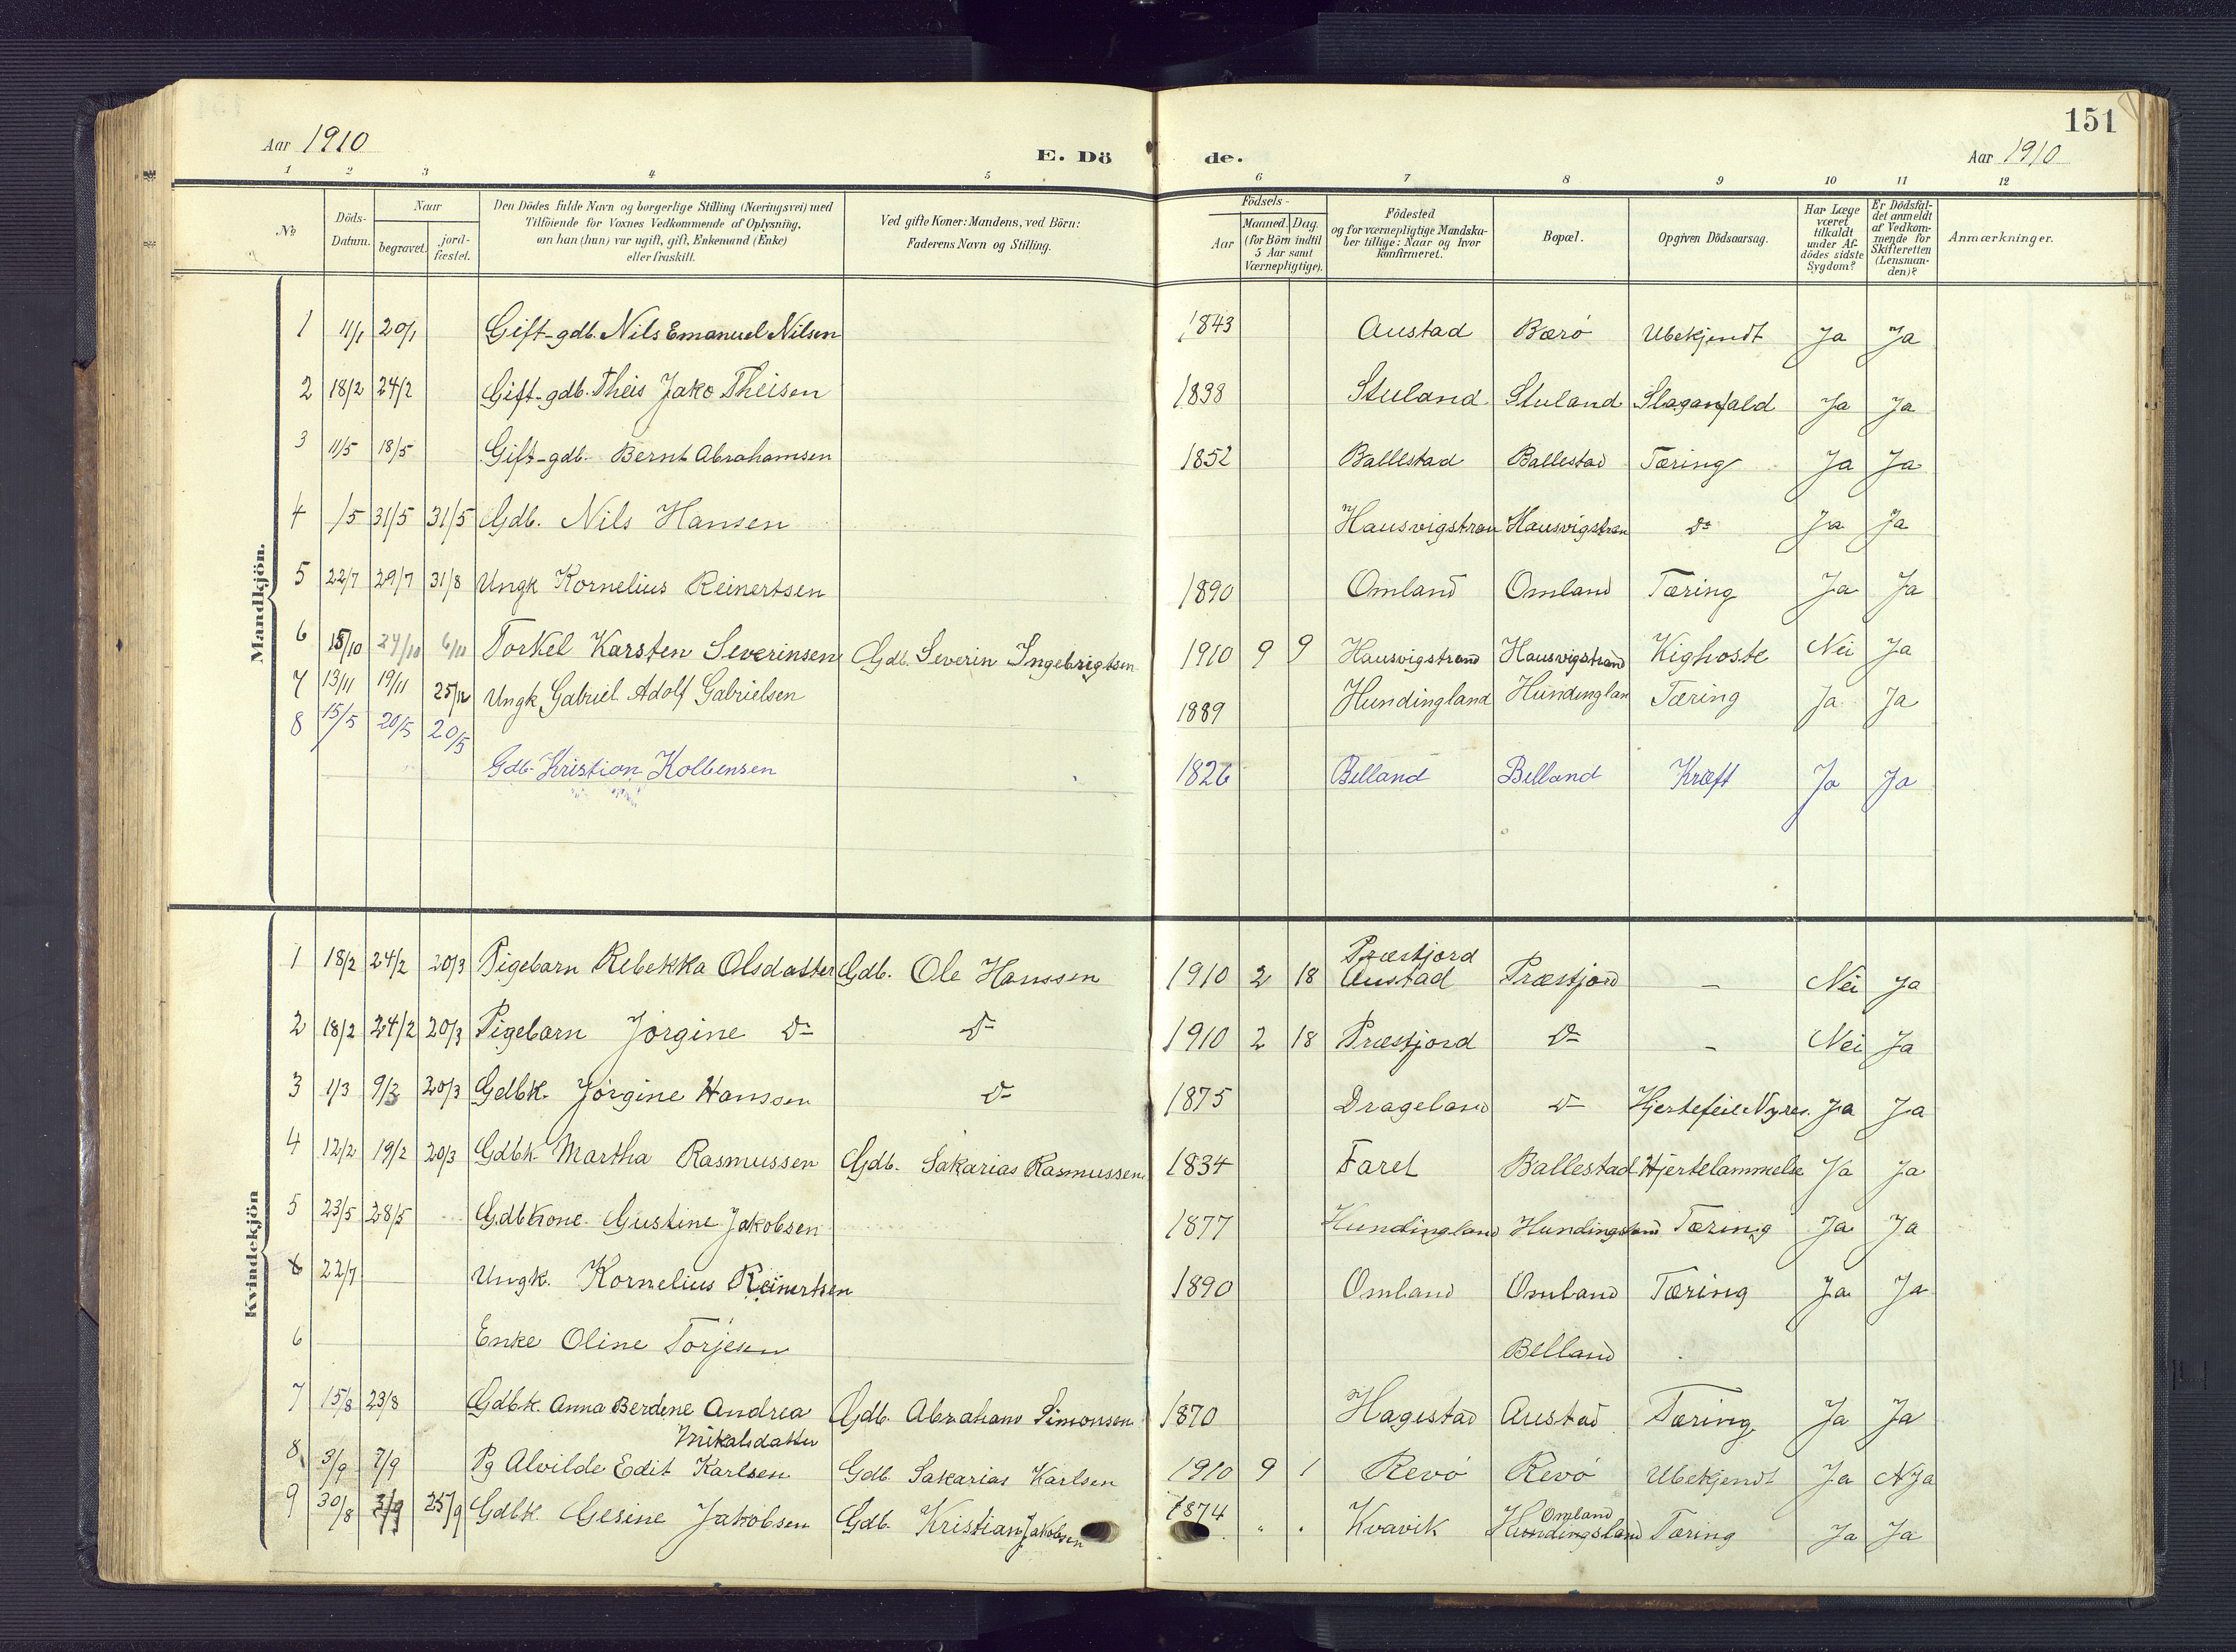 151
Aar 1910 E. Dö de. Aar 1910
1 2 3 4 5 6 7 8 9 10 11 12
No. Döds-Datum. Naar begravet. jord-fæstet. Den Dödes fulde Navn og borgerlige Stilling (Næringsvei) med Tilföiende for Voxnes Vedkommende af Oplysning, om han (hun) var ugift, gift, Enkemand (Enke) eller fraskilt. Ved gifte Koner: Mandens, ved Börn: Faderens Navn og Stilling. Födsels- Aar Maaned. Dag. (for Börn indtil 5 Aar samt Værnepligtige). Födested og for værnepligtige Mandska-ber tillige: Naar og hvor konfirmeret. Bopæl. Opgiven Dödsaarsag. Har Læge været tilkaldt under Af-dödes sidste Sygdom? Er Dödsfal-det anmeldt af Vedkom-mende for Skifteretten (Lensman-den)? Anmærkninger.
Mandkjön.
1 11/1 20/1 Gift-gdb. Nils Emanuel Nilsen 1843 Austad Bærö Ubekjendt Ja Ja
2 18/2 24/2 Gift-gdb. Theis Jako Theisen 1838 Stuland Stuland Slaganfald Ja Ja
3 11/5 18/5 Gift-gdb. Bernt Abrahamsen 1852 Ballestad Ballestad Tæring Ja Ja
4 /5 31/5 31/5 Gdb. Nils Hansen Hausvigstran Hausvigstran do Ja Ja
5 22/7 29/7 31/8 Ungk Kornelius Reinertsen 1890 Omland Omland Tæring Ja Ja
6 15/10 24/10 6/11 Torkel Karsten Severinsen Gdb. Severin Ingebrigtsen 1910 9 9 Hausvigstrand Hausvigstrand Kighoste Nei Ja
7 13/11 19/11 25/12 Ungk Gabriel Adolf Gabrielsen 1889 Hundingland Hundinglan Tæring Ja Ja
8 15/5 20/5 20/5 Gdb. Kristian Kolbensen 1826 Belland Belland Kræft Ja Ja
Kvindekjön
1 18/2 24/2 20/3 Pigebarn Rebekka Olsdatter Gdb. Ole Hanssen 1910 2 18 Præstjord Austad Præstjord – Nei Ja
2 18/2 24/2 20/3 Pigebarn Jörgine do do 1910 2 18 Præstjord do – Nei Ja
3 1/3 9/3 20/3 Gdbk. Jörgine Hanssen do 1875 Drageland do Hjertefeil Nyres. Ja Ja
4 12/2 19/2 20/3 Gdbk. Martha Rasmussen Gdb. Sakarias Rasmussen 1834 Faret Ballestad Hjertelammelse Ja Ja
5 23/5 28/5 Gdbkone. Gustine Jakobsen 1877 Hundingland Hundingsland Tæring Ja Ja
6 22/7 Ungk. Kornelius Reinertsen 1890 Omland Omland Tæring Ja Ja
6 Enke Oline Torjesen Belland
7 15/8 23/8 Gdbk. Anna Berdene Andrea Gdb. Abraham Simonsen 1870 Hagestad Austad Tæring Ja Ja
8 3/9 7/9 Pg Alvilde Edit Karlsen Gdb. Sakarias Karlsen 1910 9 1 Revö Revö Ubekjendt Ja Ja
9 30/8 3/9 25/9 Gdbk. Gesine Jakobsen Gdb. Kristian Jakobsen 1874 " " Kvavik Omland Hundingsland Tæring Ja Ja